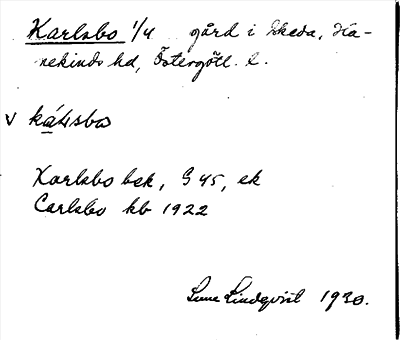 Karlsbo 1/4 gård i Skeda, Ha-
nekinds hd, Östergötl. l.
v kál̵sbo
Karlsbo bsk, G 45, ek
Carlsbo kb 1922
Sune Lindqvist 1930.